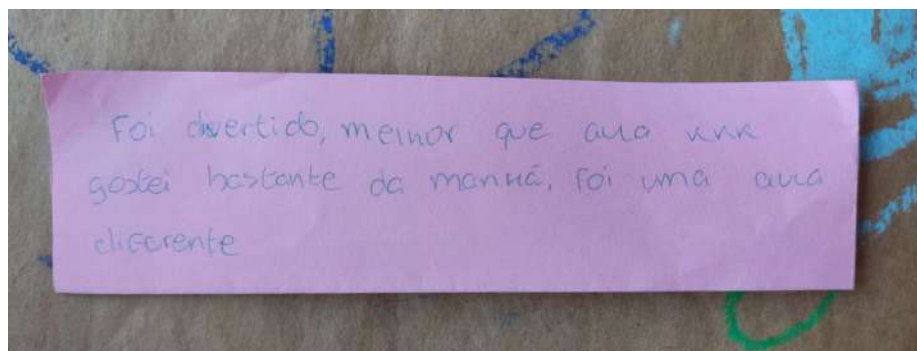 Foi divertido, melhor que aula kkk
gostei bastante da manhã, foi uma aula
diferente